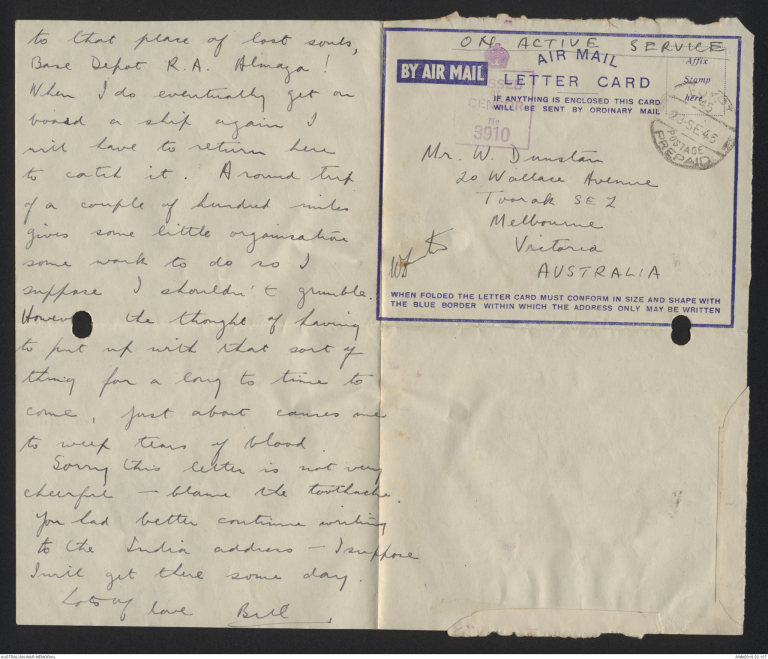 to that place of lost souls,
Base Depot R.A. Almaza!
When I do eventually get on
board a ship again I
will have to return here
to catch it. A round trip
of a couple of hundred miles
gives some little organisation
some work to do so I
suppose I shouldn't grumble.
However the thought of having
to put up with that sort of
thing for a long to time to
come, just about causes me
to weep tears of blood.
Sorry this letter is not very
cheerful – blame the toothache.
You had better continue writing
to the India address – I suppose
I will get there some day.
Lots of love Bill
ON ACTIVE SERVICE
BY AIR MAIL
AIR MAIL
LETTER CARD
IF ANYTHING IS ENCLOSED THIS CARD
WILL BE SENT BY ORDINARY MAIL
Affix
Stamp
here
PASSED
CENSOR
No
3910
SE 45
POSTAGE
PREPAID
Mr. W. Dunstan
20 Wallace Avenue
Toorak SE 2
Melbourne
Victoria
AUSTRALIA
WHEN FOLDED THE LETTER CARD MUST CONFORM IN SIZE AND SHAPE WITH
THE BLUE BORDER WITHIN WHICH THE ADDRESS ONLY MAY BE WRITTEN
AUSTRALIAN WAR MEMORIAL